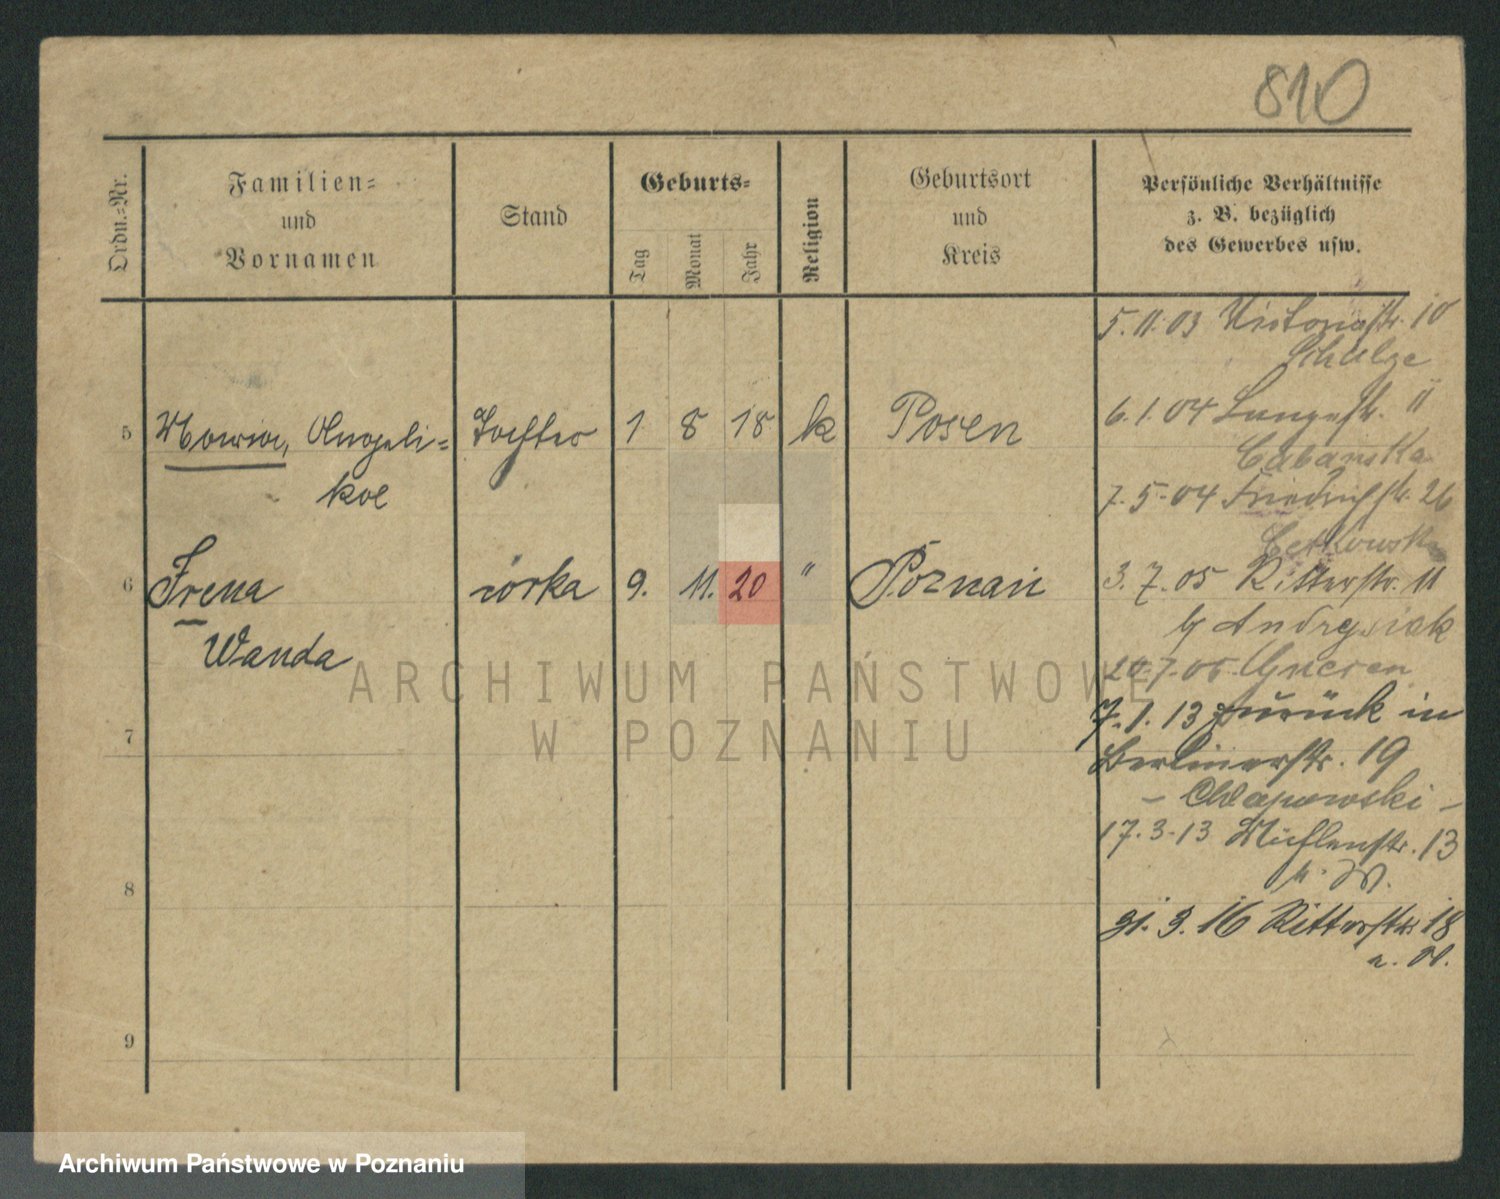 810
Ordn.-Nr.
Familien-
und
Vornamen
Stand
Geburts-
Tag
Monat
Jahr
Religion
Geburtsort
und
Kreis
Persönliche Verhältnisse
z. B. bezüglich
des Gewerbes usw.
5 Maria, Angeli-
ka
Tochter 1 8 18 k Posen
6 Irena
Wanda
córka 9. 11. 20 " Poznań
7
8
9
5.11.03 Victoriastr. 10
Schulze
6.1.04 Langestr. 11
Cabanska
7.5.04 Friedrichstr. 26
3.7.05 Ritterstr. 11
b/ Andrysiak
20.7.05 Gnesen
7.1.13 zurück in
Berlinerstr. 19
- Chlapowski -
17.3.13 Mühlenstr. 13
31.3.16 Ritterstr. 18
ARCHIWUM PAŃSTWOWE
W POZNANIU
Archiwum Państwowe w Poznaniu